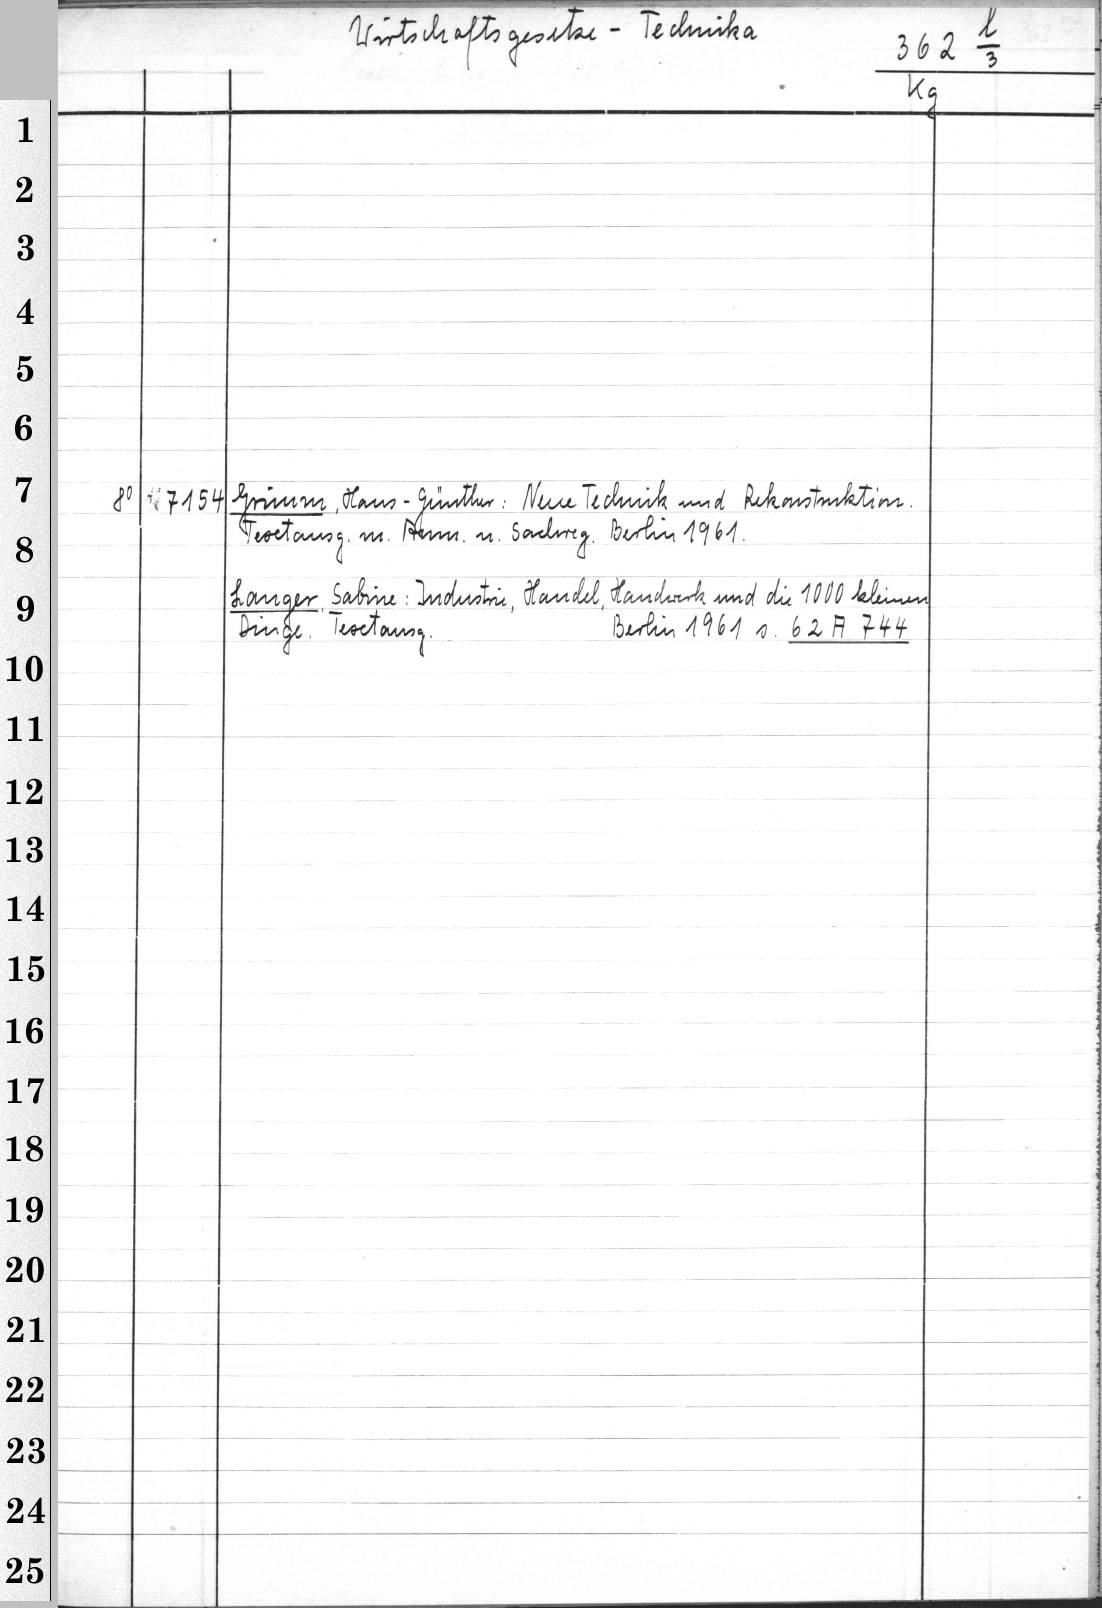 Wirtschaftsgesetze - Technika
362 l/3
Kg
1
2
3
4
5
6
7
8° 7154 Grimm, Hans-Günther: Neue Technik und Rekonstruktion.
8
Textausg. m. Anm. u. Sachreg. Berlin 1961.
9
Langer, Sabine: Industrie, Handel, Handwerk und die 1000 kleinen
Dinge. Textausg. Berlin 1961 s. 62 A 744
10
11
12
13
14
15
16
17
18
19
20
21
22
23
24
25